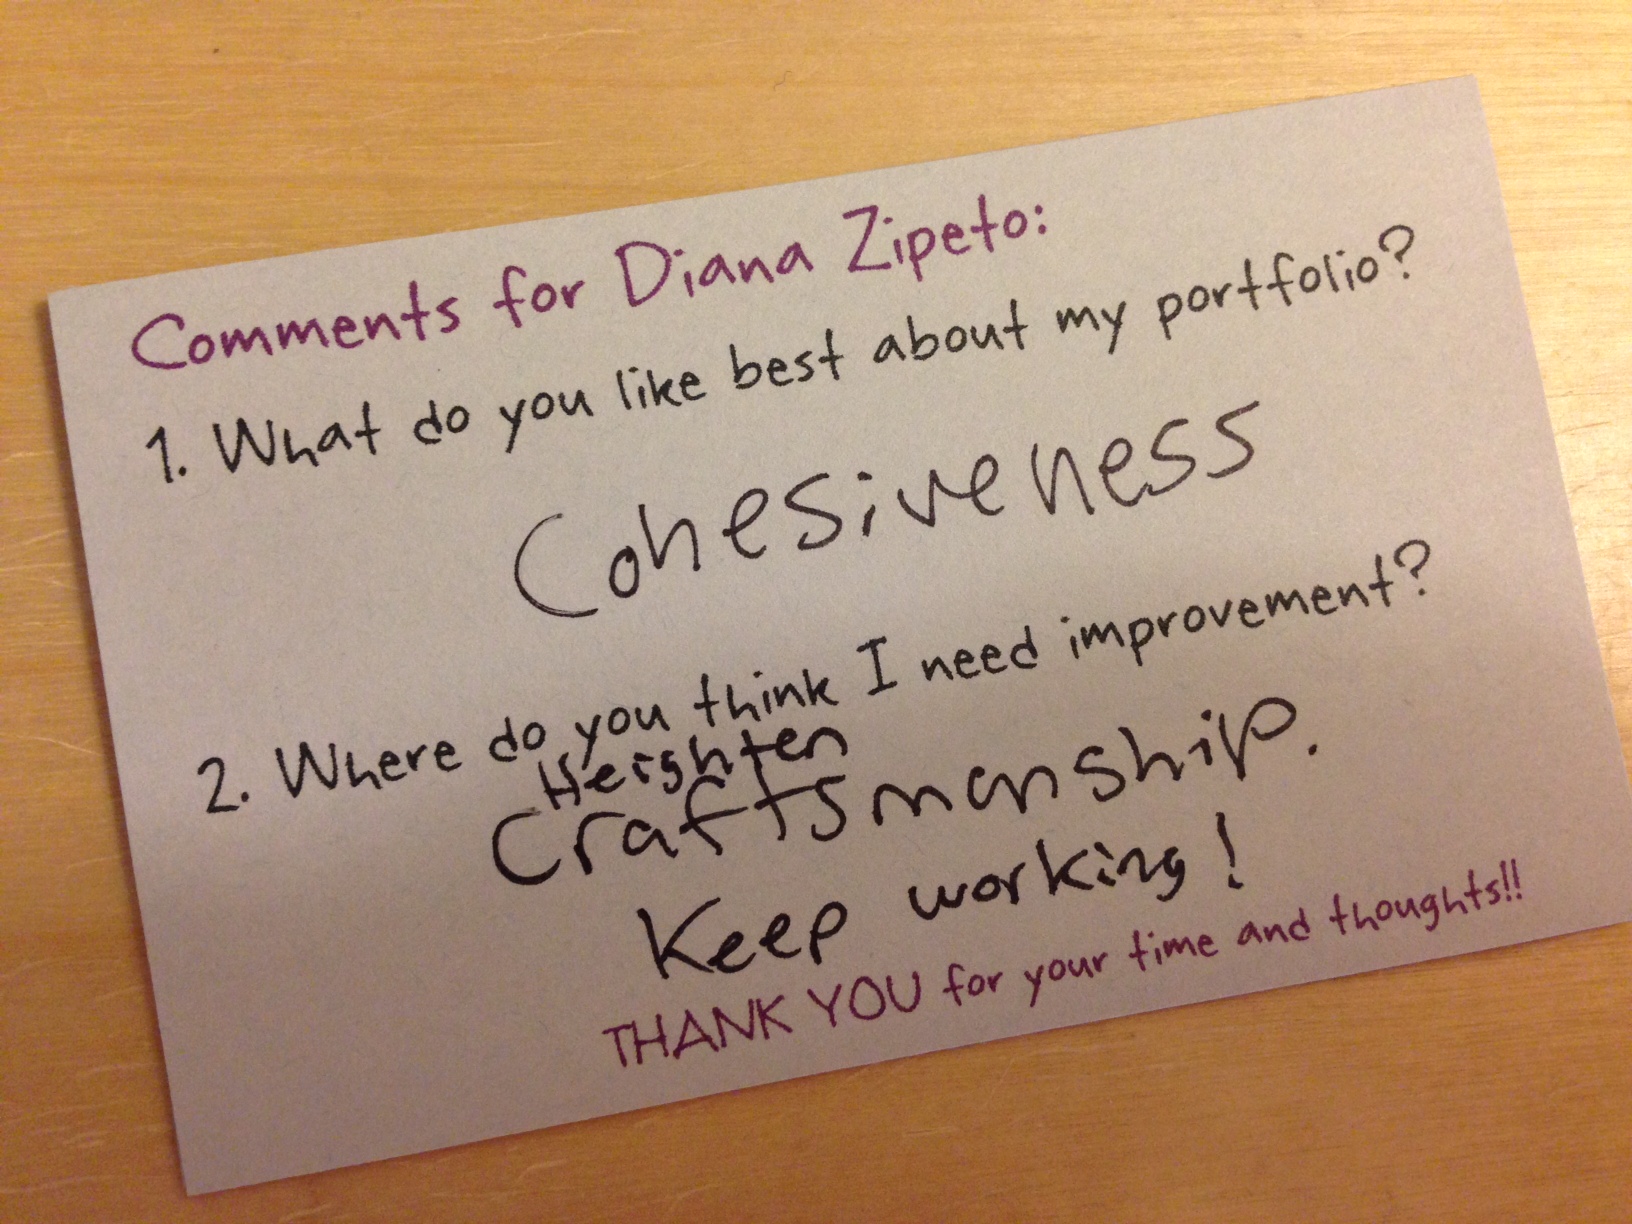 Comments for Diana Zipeto:
1. What do you like best about my portfolio?
Cohesiveness
2. Where do you think I need improvement?
Heighten
Craftsmanship.
Keep working!
THANK YOU for your time and thoughts!!